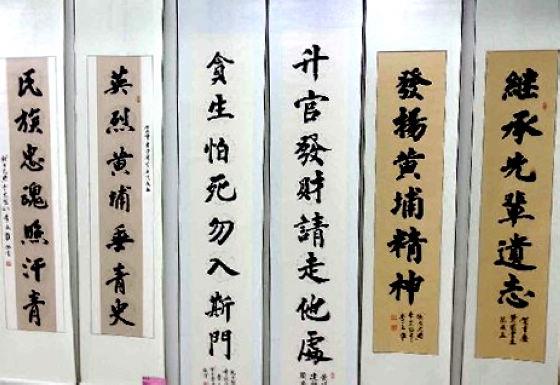 继承先辈遗志
發揚黄埔精神
升官發财請走他處
貪生怕死勿入斯門
英烈黄埔垂青史
民族忠魂照汗青